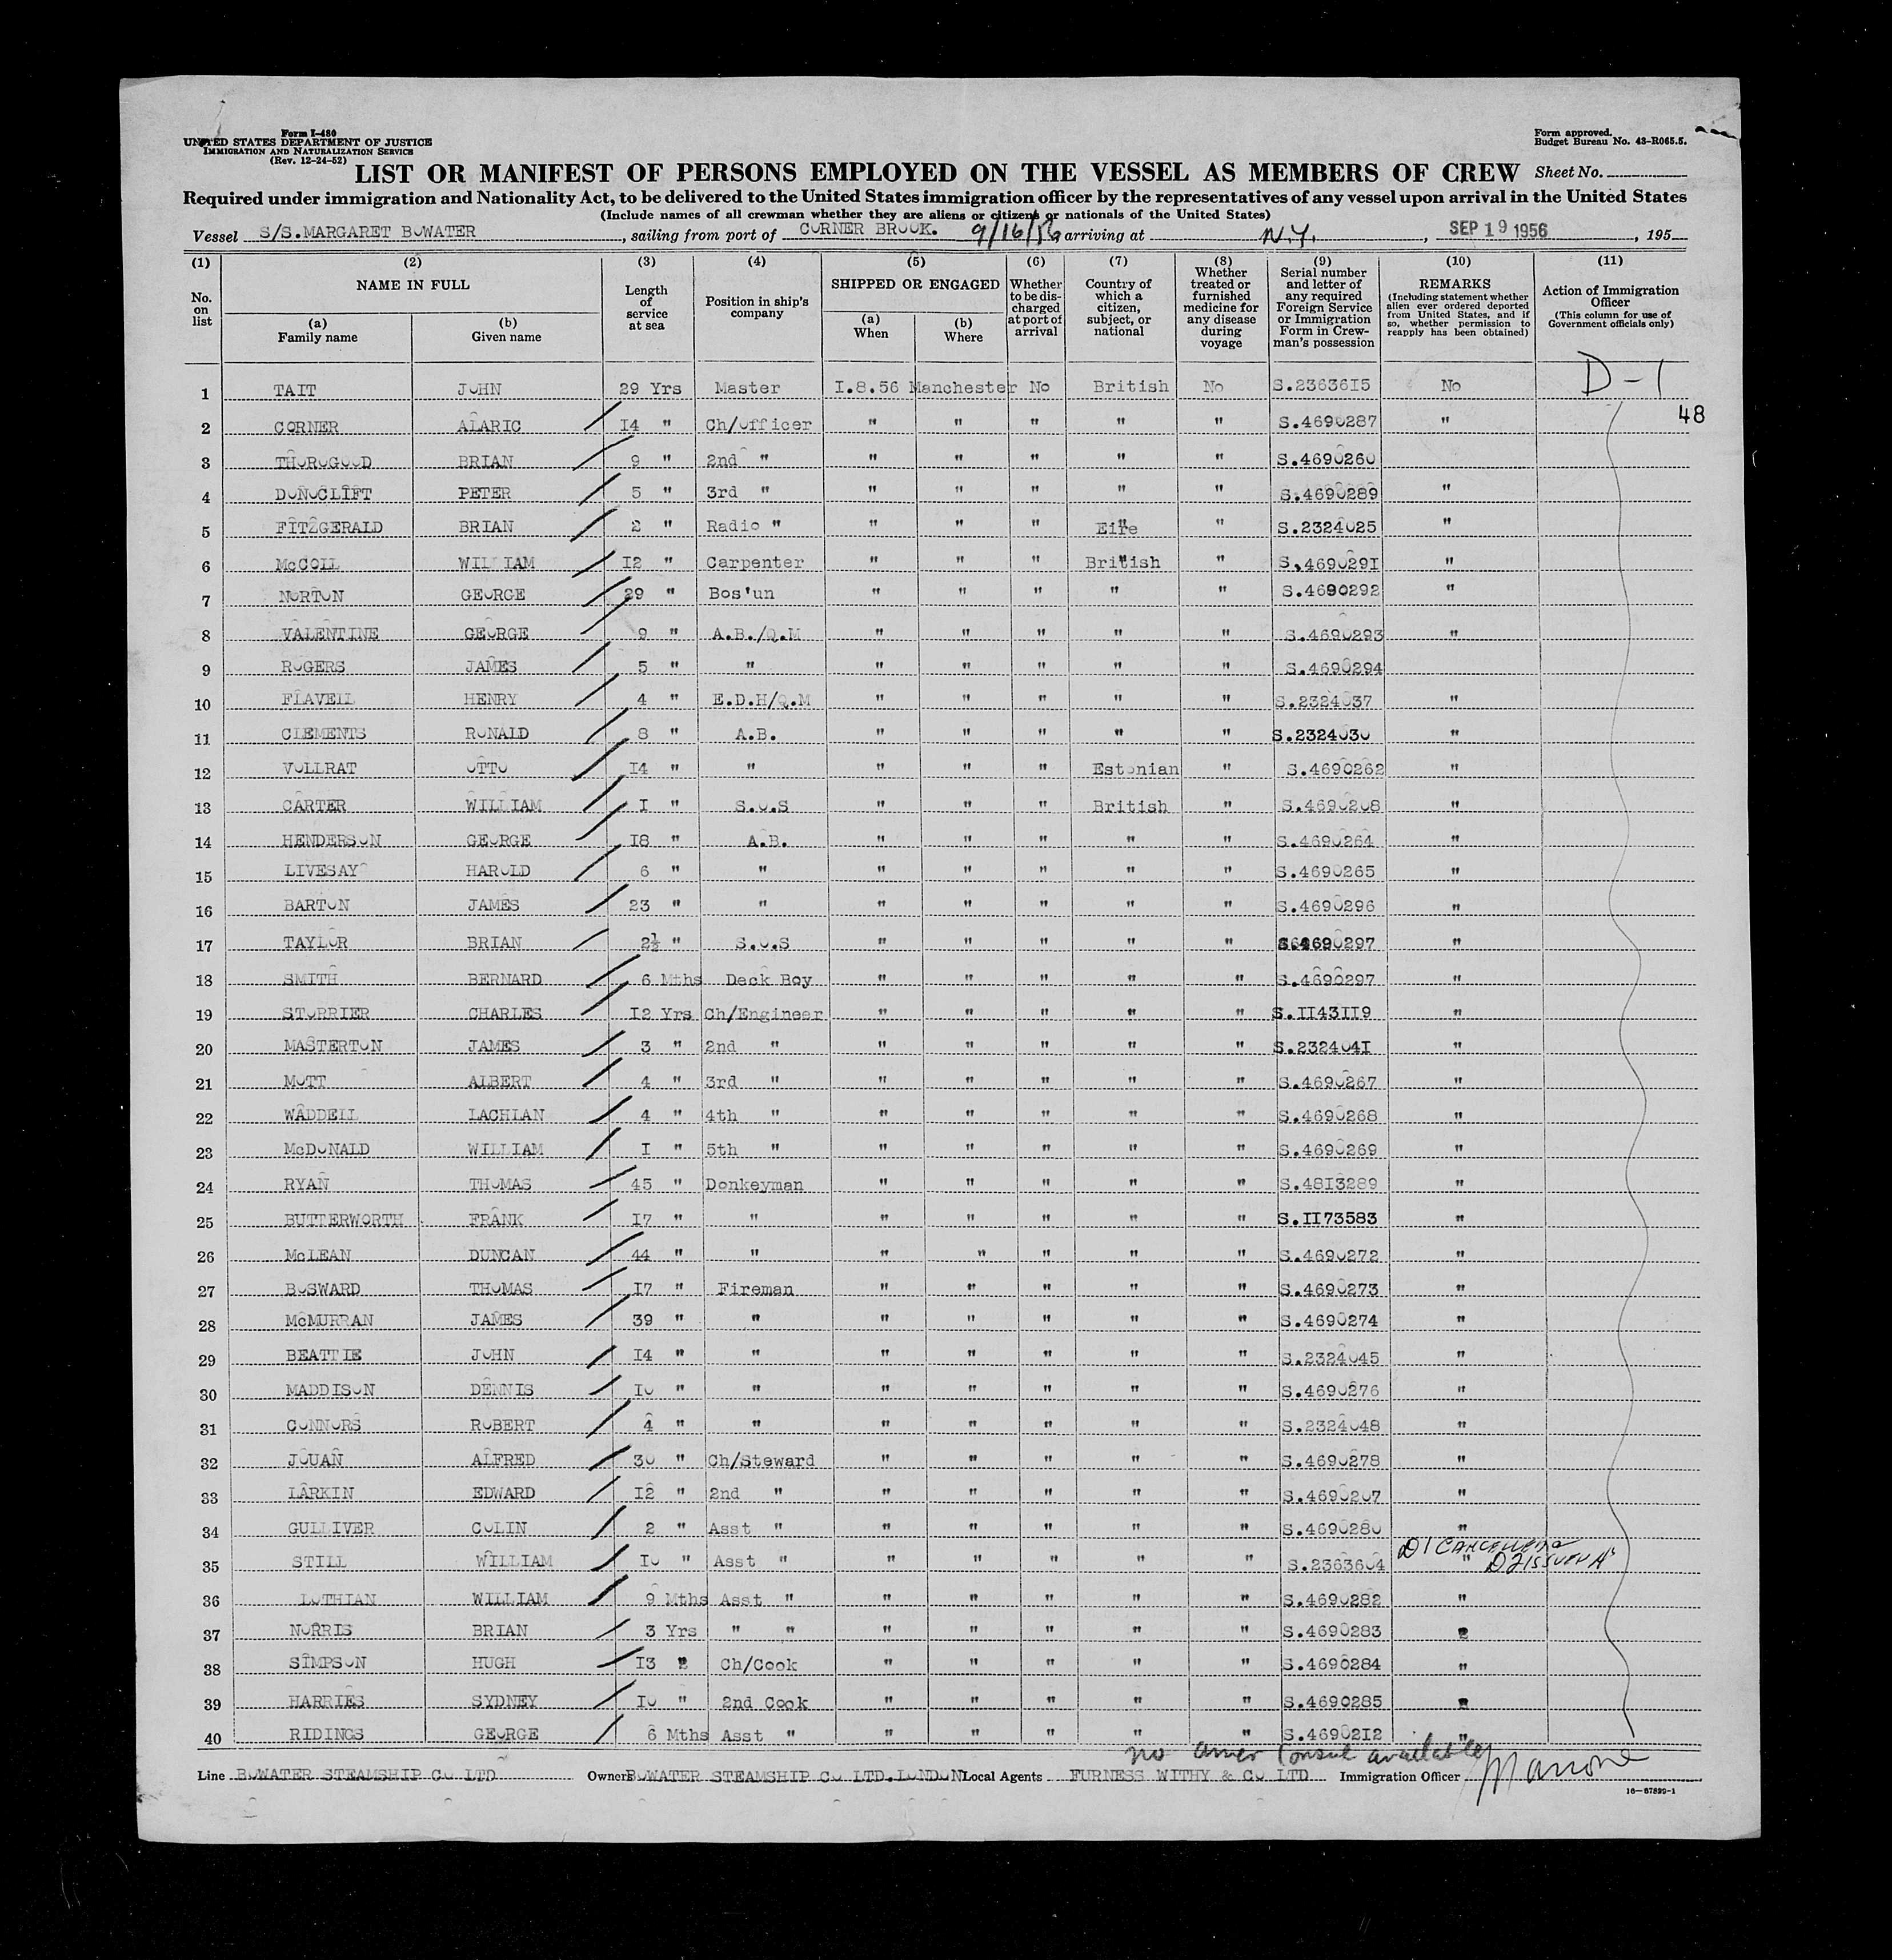 Form I-480
UNITED STATES DEPARTMENT OF JUSTICE
IMMIGRATION AND NATURALIZATION SERVICE
(Rev. 12-24-52)
Form approved.
Budget Bureau No. 43-R065.5.
LIST OR MANIFEST OF PERSONS EMPLOYED ON THE VESSEL AS MEMBERS OF CREW Sheet No.
Required under immigration and Nationality Act, to be delivered to the United States immigration officer by the representatives of any vessel upon arrival in the United States
(Include names of all crewman whether they are aliens or citizens or nationals of the United States)
Vessel S/S.MARGARET BOWATER, sailing from port of CORNER BROOK. 9/16/56 arriving at N.Y., SEP 19 1956, 195
(1) (2) (3) (4) (5) (6) (7) (8) (9) (10) (11)
No. on list
NAME IN FULL
(a) Family name
(b) Given name
Length of service at sea
Position in ship's company
SHIPPED OR ENGAGED
(a) When
(b) Where
Whether to be discharged at port of arrival
Country of which a citizen, subject, or national
Whether treated or furnished medicine for any disease during voyage
Serial number and letter of any required Foreign Service or Immigration Form in Crewman's possession
REMARKS
(Including statement whether alien ever ordered deported from United States, and if so, whether permission to reapply has been obtained)
Action of Immigration Officer
(This column for use of Government officials only)
1 TAIT JOHN 29 Yrs Master I.8.56 Manchester No British No S.2363615 No D-1
48
2 CORNER ALARIC 14 " Ch/officer " " " " " S.4690287 "
3 THOROGOOD BRIAN 9 " 2nd " " " " " " S.4690260
4 DONOCLIFT PETER 5 " 3rd " " " " " " S.4690289 "
5 FITZGERALD BRIAN 2 " Radio " " " " Eire " S.2324025 "
6 McCOLL WILLIAM I2 " Carpenter " " " British " S.469029I "
7 NORTON GEORGE 29 " Bos'un " " " " " S.4690292 "
8 VALENTINE GEORGE 9 " A.B./Q.M " " " " " S.4690293 "
9 ROGERS JAMES 5 " " " " " " " S.4690294
10 FLAVELL HENRY 4 " E.D.H/Q.M " " " " " S.2324037 "
11 CLEMENTS RONALD 8 " A.B. " " " " " S.2324030 "
12 VOLLRAT OTTO I4 " " " " " Estonian " S.4690262 "
13 CARTER WILLIAM I " S.O.S " " " British " S.4690208 "
14 HENDERSON GEORGE I8 " A.B. " " " " " S.4690264 "
15 LIVESAY HAROLD 6 " " " " " " " S.4690265 "
16 BARTON JAMES 23 " " " " " " " S.4690296 "
17 TAYLOR BRIAN 2½ " S.O.S " " " " " S.4690297 "
18 SMITH BERNARD 6 Mths Deck Boy " " " " " S.4690297 "
19 STORRIER CHARLES I2 Yrs Ch/Engineer " " " " " S.II43II9 "
20 MASTERTON JAMES 3 " 2nd " " " " " " S.232404I "
21 MOTT ALBERT 4 " 3rd " " " " " " S.4690267 "
22 WADDELL LACHLAN 4 " 4th " " " " " " S.4690268 "
23 McDONALD WILLIAM I " 5th " " " " " " S.4690269 "
24 RYAN THOMAS 45 " Donkeyman " " " " " S.48I3289 "
25 BUTTERWORTH FRANK I7 " " " " " " " S.II73583 "
26 McLEAN DUNCAN 44 " " " " " " " S.4690272 "
27 BOSWARD THOMAS I7 " Fireman " " " " " S.4690273 "
28 McMURRAN JAMES 39 " " " " " " " S.4690274 "
29 BEATTIE JOHN I4 " " " " " " " S.2324045 "
30 MADDISON DENNIS I0 " " " " " " " S.4690276 "
31 CONNORS ROBERT 4 " " " " " " " S.2324048 "
32 JOUAN ALFRED 30 " Ch/Steward " " " " " S.4690278 "
33 LARKIN EDWARD I2 " 2nd " " " " " " S.4690207 "
34 GULLIVER COLIN 2 " Asst " " " " " " S.4690280 "
35 STILL WILLIAM I0 " Asst " " " " " " S.2363604 " D1 Cancelled D2 issued
36 LOTHIAN WILLIAM 9 Mths Asst " " " " " " S.4690282 "
37 NORRIS BRIAN 3 Yrs " " " " " " " S.4690283 "
38 SIMPSON HUGH I3 " Ch/Cook " " " " " S.4690284 "
39 HARRIES SYDNEY I0 " 2nd Cook " " " " " S.4690285 "
40 RIDINGS GEORGE 6 Mths Asst " " " " " " S.46902I2 "
no amer Consul available
Line BOWATER STEAMSHIP CO LTD Owners BOWATER STEAMSHIP CO LTD.LONDON Local Agents FURNESS WITHY & CO LTD Immigration Officer
16—67899-1